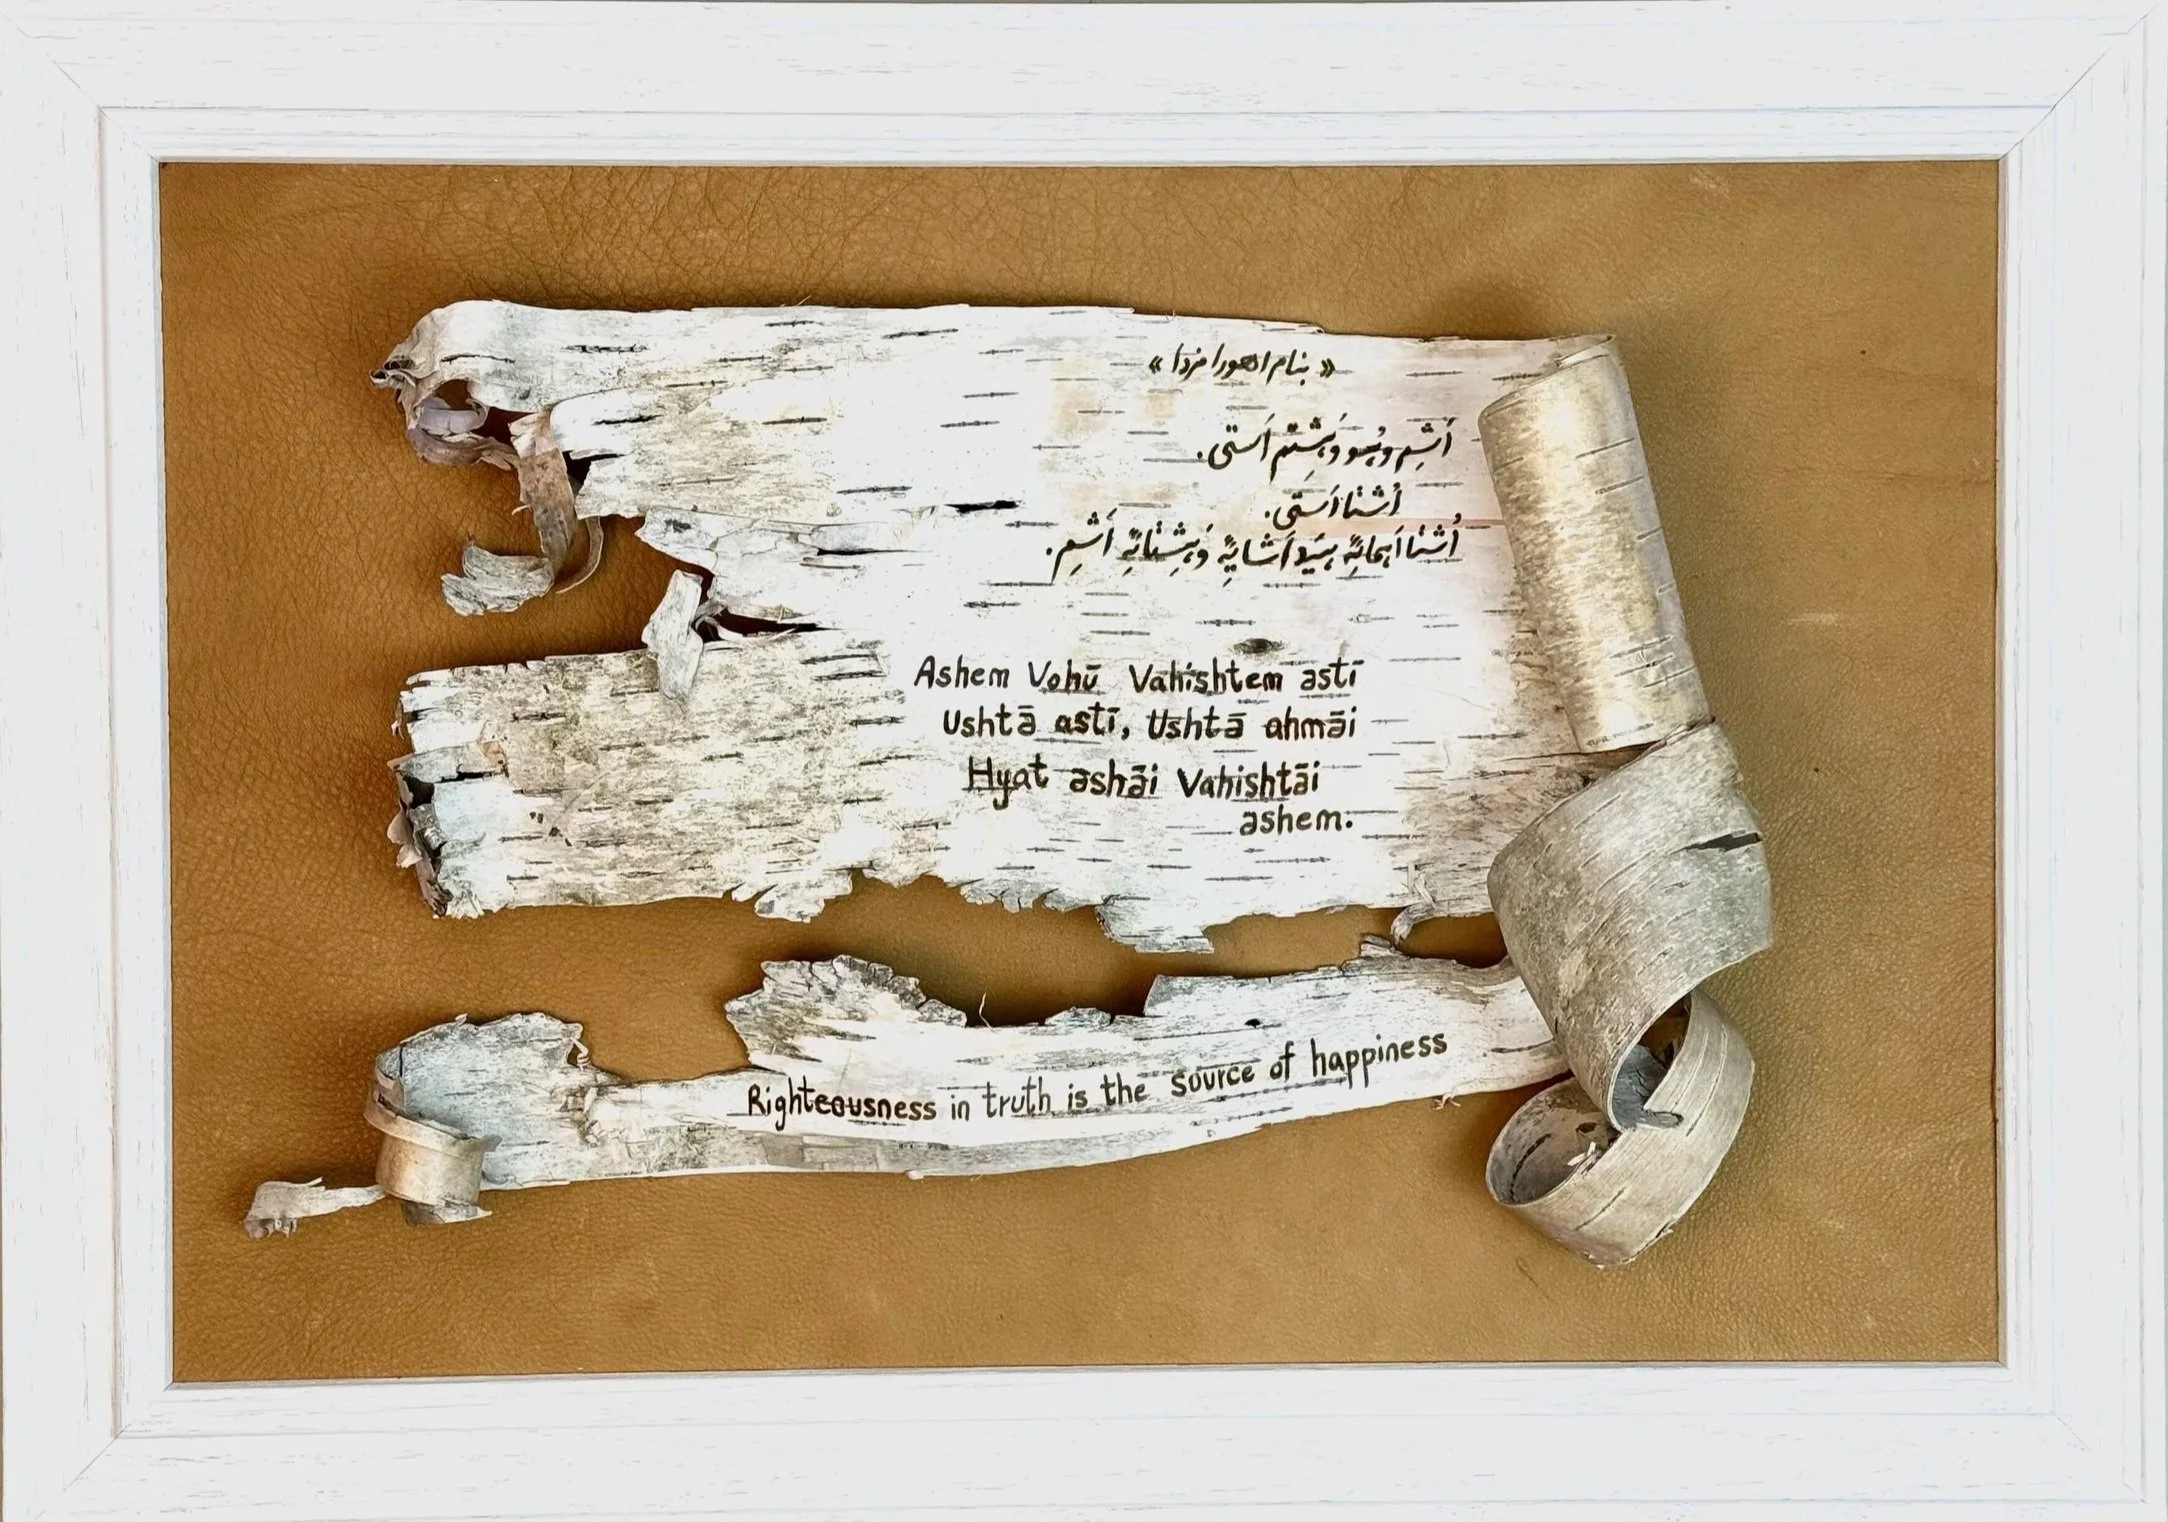 « بنام اهورا مزدا »
اَشِم وُهو وَهیشتِم اَستی.
اُشتا اَستَی.
اُشتا اَهمائِی هیَد اَشائِی وَهیشتائِی اَشِم.
Ashem Vohū Vahishtem astī
Ushtā astī, Ushtā ahmāi
Hyat ashāi Vahishtāi
ashem.
Righteousness in truth is the source of happiness